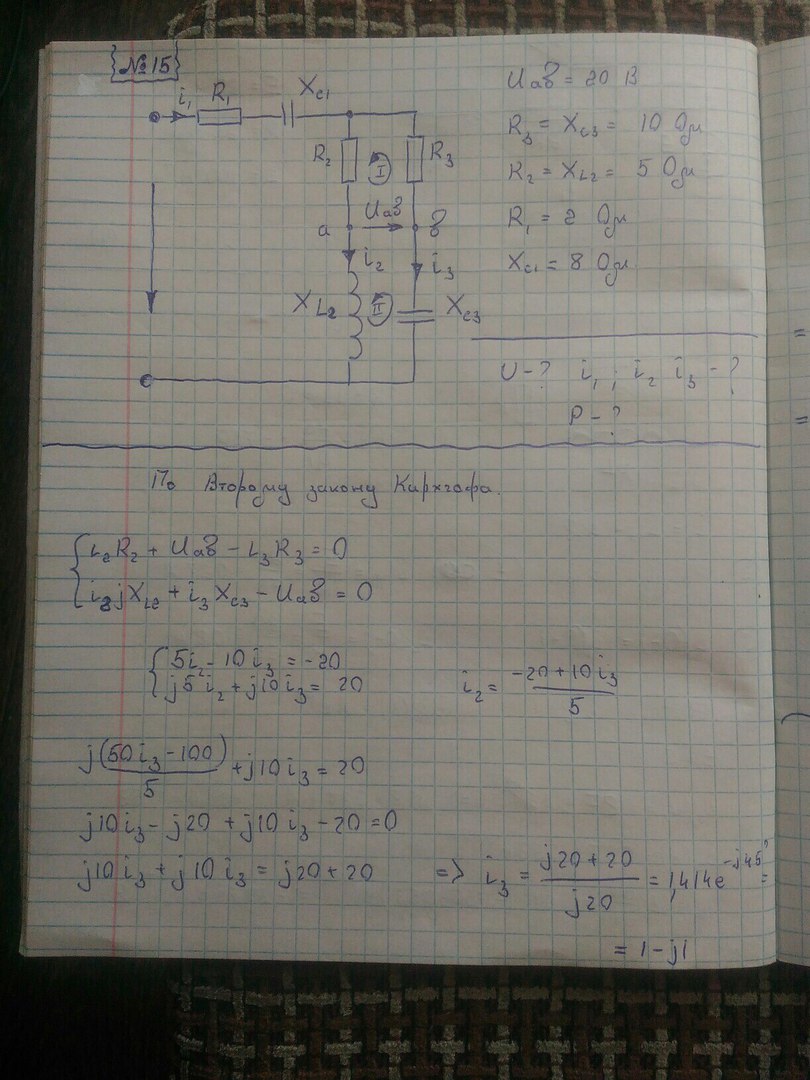 №15
i₁ R₁ X_C1
R₂ I R₃
a U_aв в
i₂ i₃
X_L2 II X_C3
U_aв = 20 В
R₃ = X_C3 = 10 Ом
R₂ = X_L2 = 5 Ом
R₁ = 2 Ом
X_C1 = 8 Ом.
U - ? i₁ ; i₂ i₃ - ?
P - ?
По Второму закону Кирхгофа.
i₂R₂ + U_aв - i₃R₃ = 0
i₂jX_L2 + i₃X_C3 - U_aв = 0
5i₂ - 10i₃ = -20
j5i₂ + j10i₃ = 20
i₂ = (-20 + 10i₃)/5
j(50i₃ - 100)/5 + j10i₃ = 20
j10i₃ - j20 + j10i₃ - 20 = 0
j10i₃ + j10i₃ = j20 + 20 => i₃ = (j20 + 20)/j20 = 1,414e^(-j45°) =
= 1 - j1
=
=